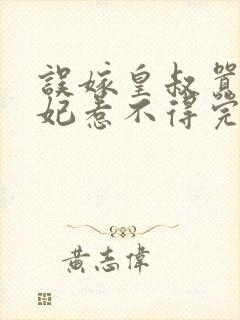 誤嫁皇叔囂
妃惹不得完
黃志偉